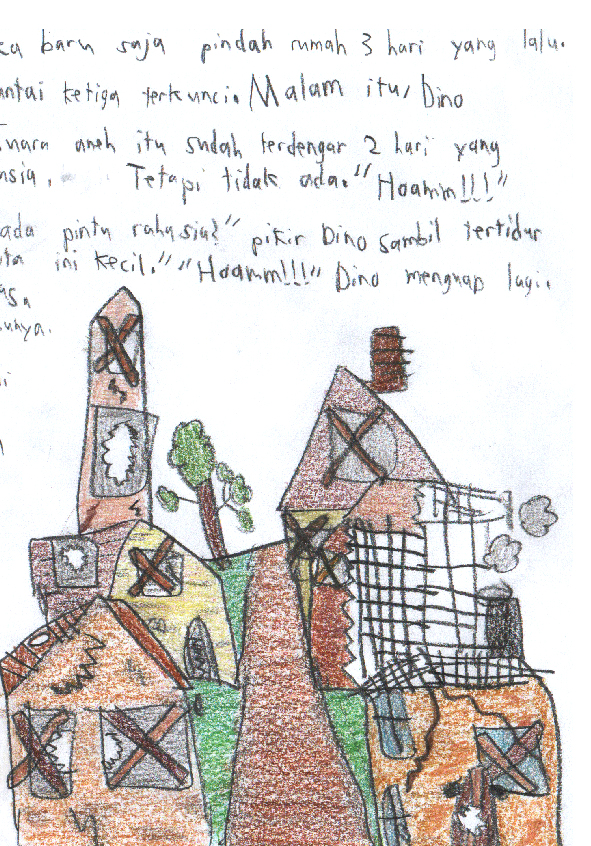 baru saja pindah rumah 3 hari yang lalu.
ketiga terkunci. Malam itu, Dino
aneh itu sudah terdengar 2 hari yang
Tetapi tidak ada." "Hoamm!!!"
ada pintu rahasia?" pikir Dino sambil tertidur
ini kecil." "Hoamm!!!" Dino menguap lagi.